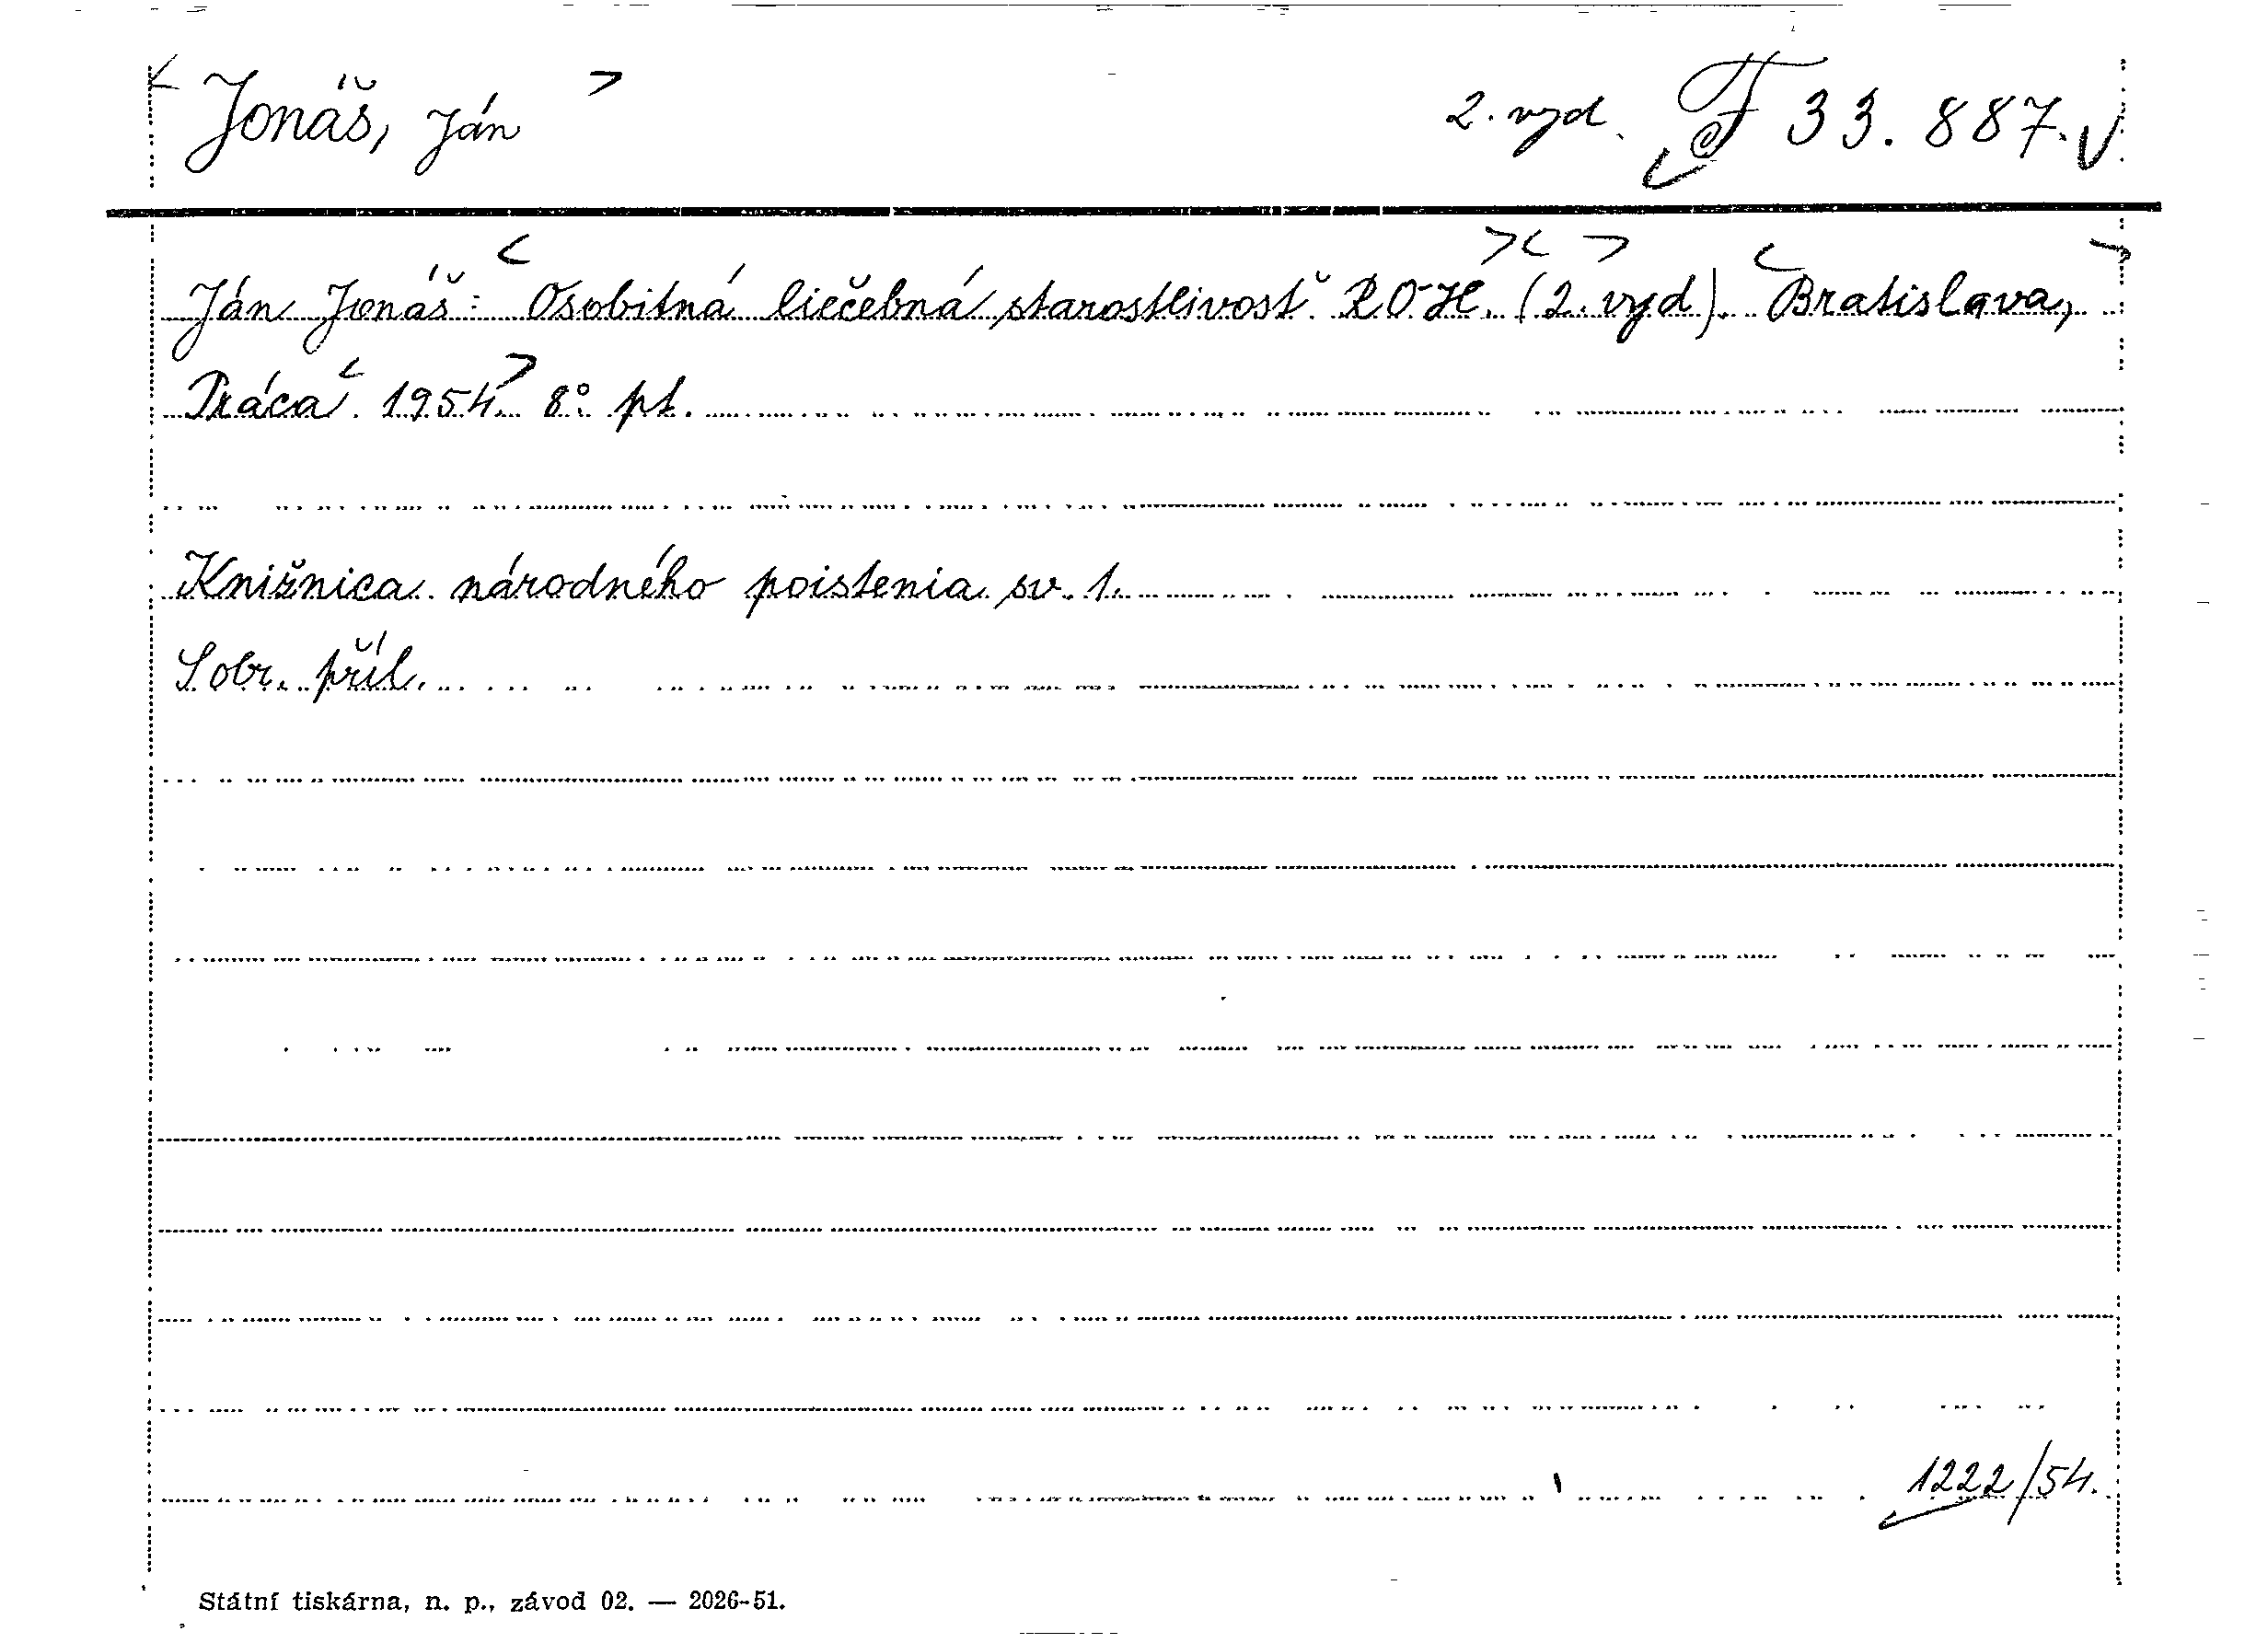 Jonáš, Ján 2. vyd. F 33.887.
Ján Jonáš: Osobitná liečebná starostlivosť ROH. (2. vyd). Bratislava,
Práca. 1954. 8° pt.
Knižnica národného poistenia sv. 1.
Sobr. příl.
1222/54.
Státní tiskárna, n. p., závod 02. — 2026-51.